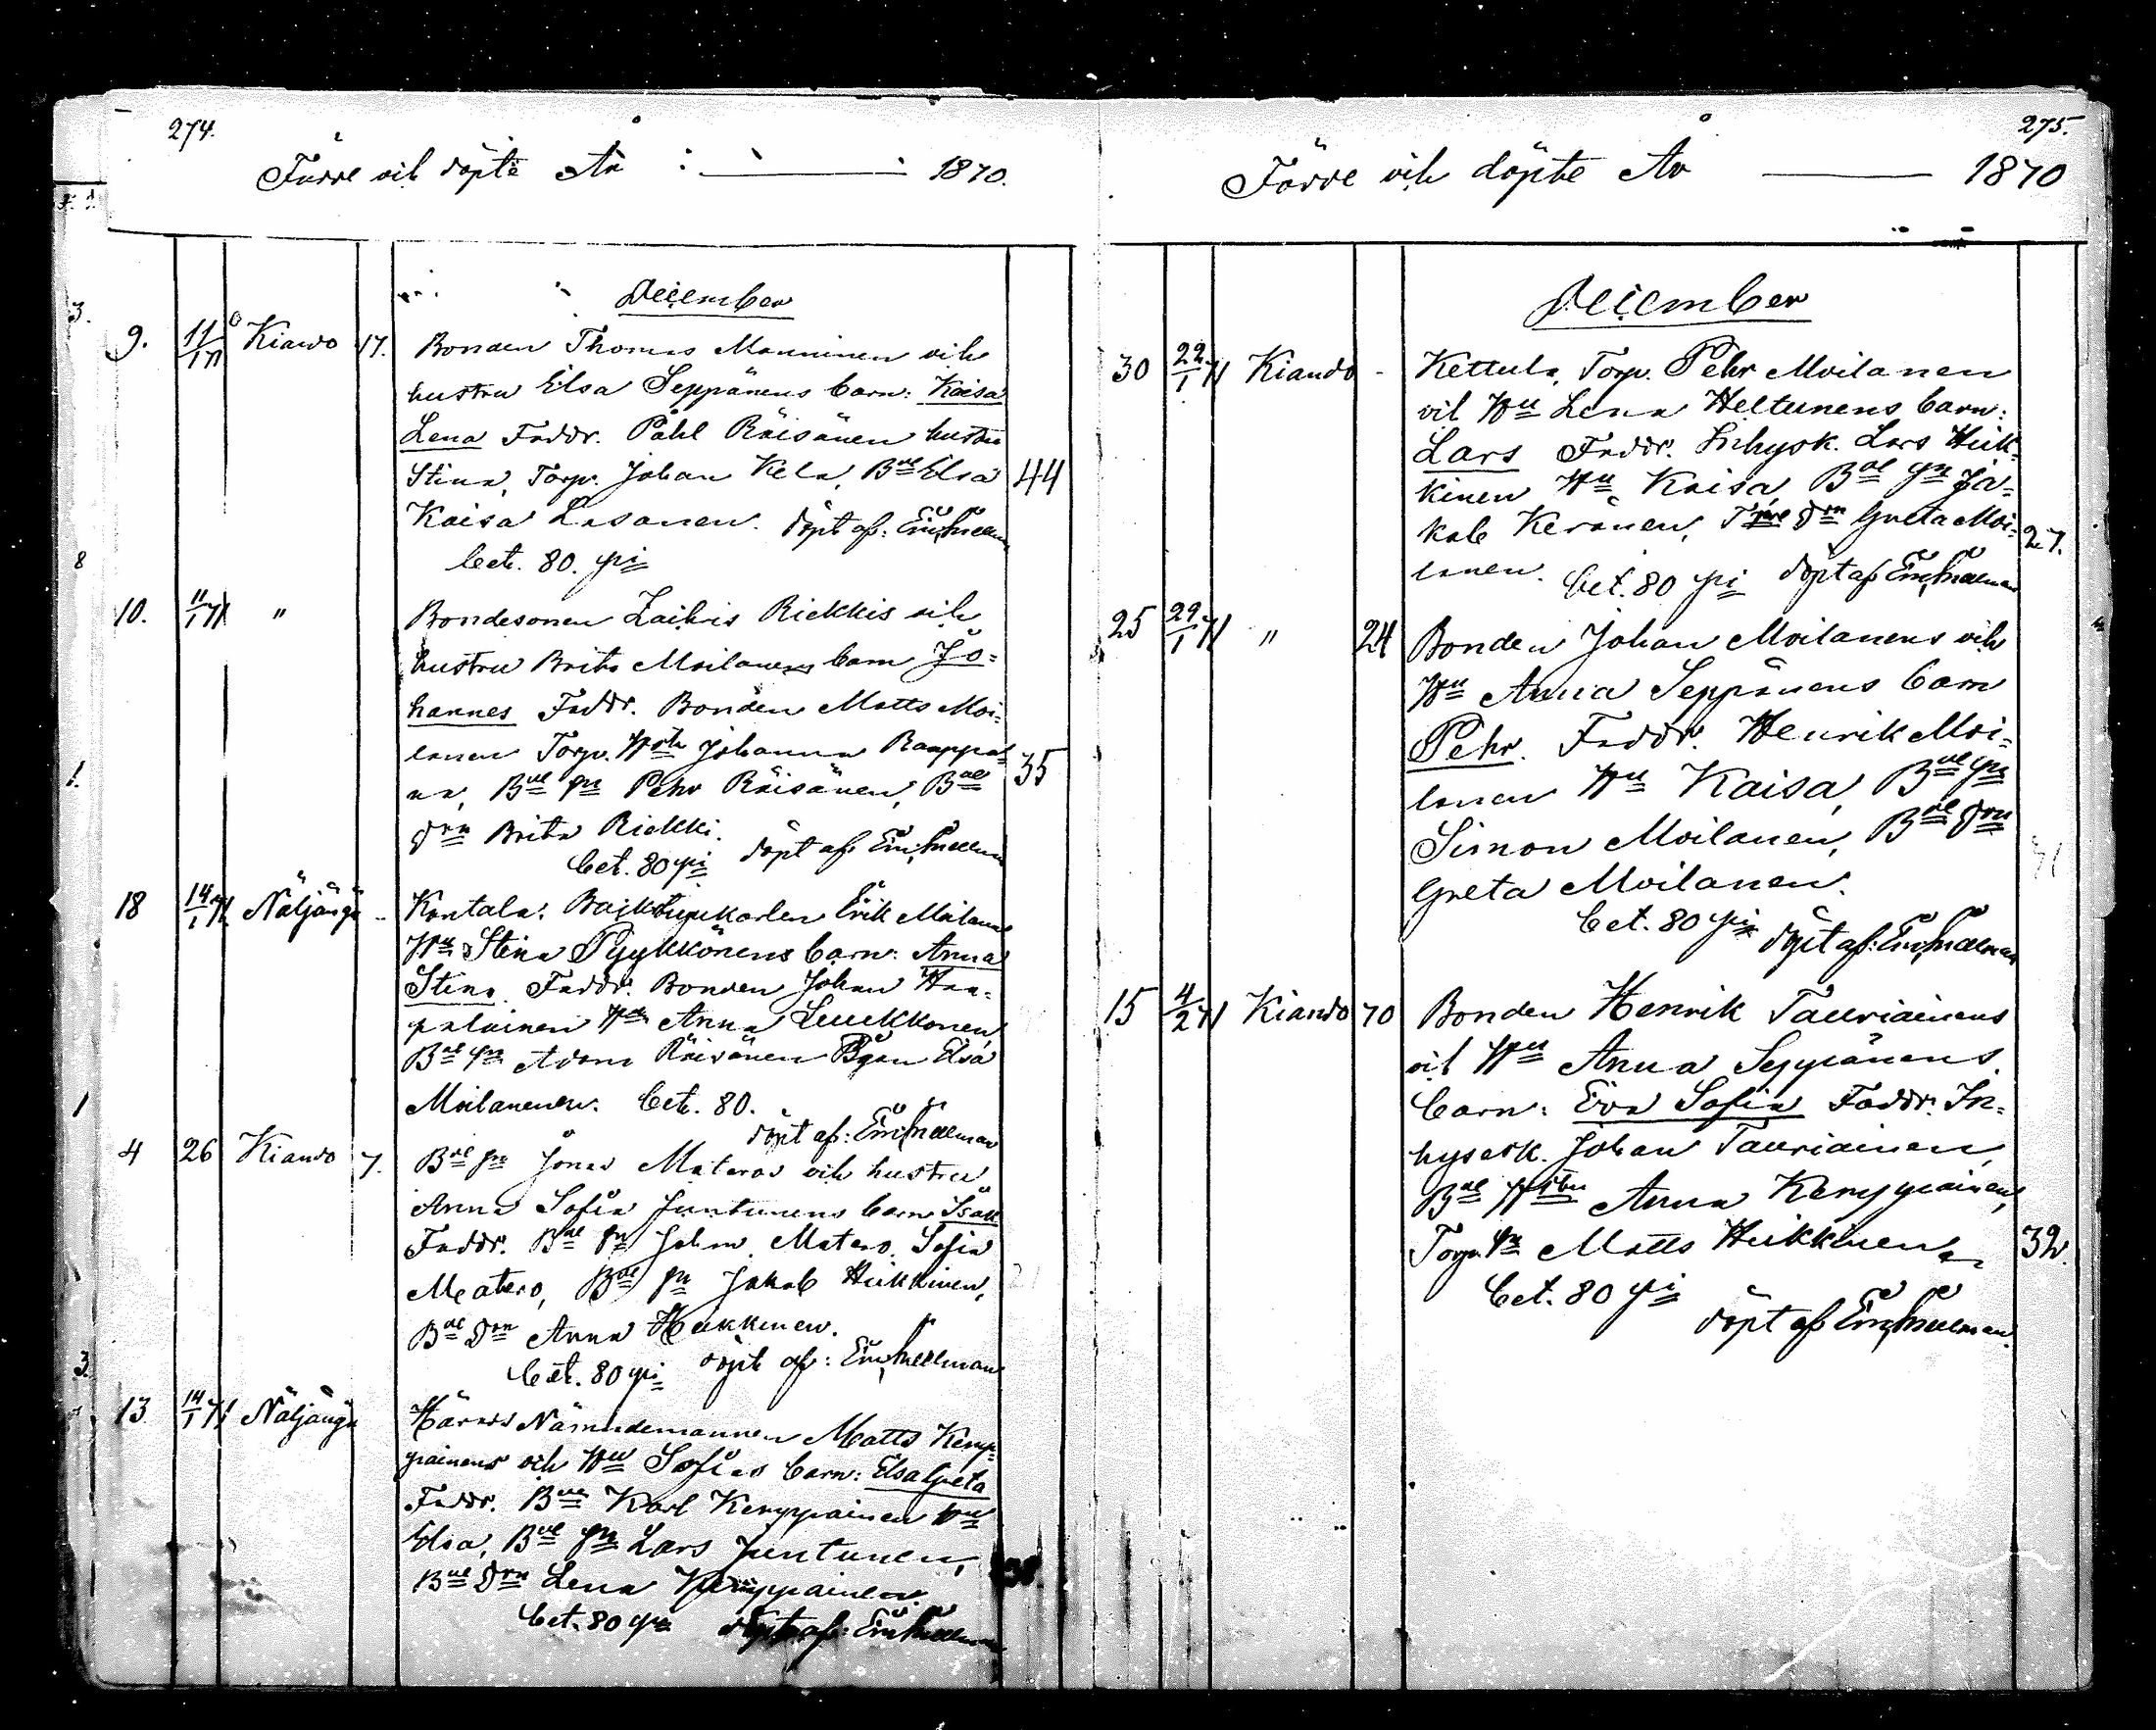 274.
Födde och döpte År : 1870.
December
9. 11/1 71 Kiando 17. Bonden Thomas Manninen och
hustru Elsa Seppänens barn: Kaisa
Lena Faddr. Påhl Räisänen hustru
Stina, Torp. Johan Kela, Bde Elsa 44
Kaisa Lesonen. döpt af:
bet. 80. pi
10. 11/1 71 " Bondesonen Zachris Riekkis och
hustru Brita Moilanens barn Jo=
hannes Faddr. Bonden Matts Moi=
lanen Torp. Johanna Rauppa=
na, Bde Sn Pehr Räisänen, Bde 35
Drn Brita Riekki.
bet. 80 pi döpt af
18 14/1 71. Näljängä - Kontala: Erik Moilanens
Hu Stina Pyykkönens barn: Anna
Stina. Faddr. Bonden Johan Haa=
palainen Hu Anna Leuekkonen,
Bde Sn Adam Räisänen Elsa
Moilanenen. bet. 80.
döpt af:
4 26 Kiando 7. Bde Sn Jonas Materos och hustru
Anna Sofia Juntunens barn Isak
Faddr. Bde Sn Johan Matero, Sofia
Matero, Bde Sn Jakob Heikkinen,
Bde Drn Anna Heikkinen.
bet. 80 pi döpt af:
13 14/1 71 Näljängä Härads Nämndemannen Matts Kemp=
painens och Hu Sofias barn: Elsa Greta
Faddr. Bde Karl Kemppainen Hu
Elsa, Bde Sn Lars Juntunen,
Bde Drn Lena Kemppainen.
bet. 80 pi döpt af:
275.
Födde och döpte År 1870
December
30 22/1 71 Kiando - Kettula, Torp. Pehr Moilanen
och Hu Lena Heltunens barn:
Lars Faddr. Inhysk. Lars Heik=
kinen Hu Kaisa, Bde Sn Ja=
kob Keränen, Drn Greta Moi= 27.
lanen. bet. 80 pi döpt af
25 29/1 71 " 24 Bonden Johan Moilanens och
Hu Anna Seppänens barn
Pehr. Faddr. Henrik Moi=
lanen Hu Kaisa, Bde Sn
Simon Moilanen, Bde Drn
Greta Moilanen.
bet. 80 pi döpt af:
15 4/2 71 Kiando 70 Bonden Henrik Tauriainens
och Hu Anna Seppänens
barn: Eva Sofia Faddr. In=
hysesk. Johan Tauriainen,
Bde Hstu Anna Kemppainen,
Torp. Sn Matts Heikkinen. 32.
bet. 80 pi
döpt af